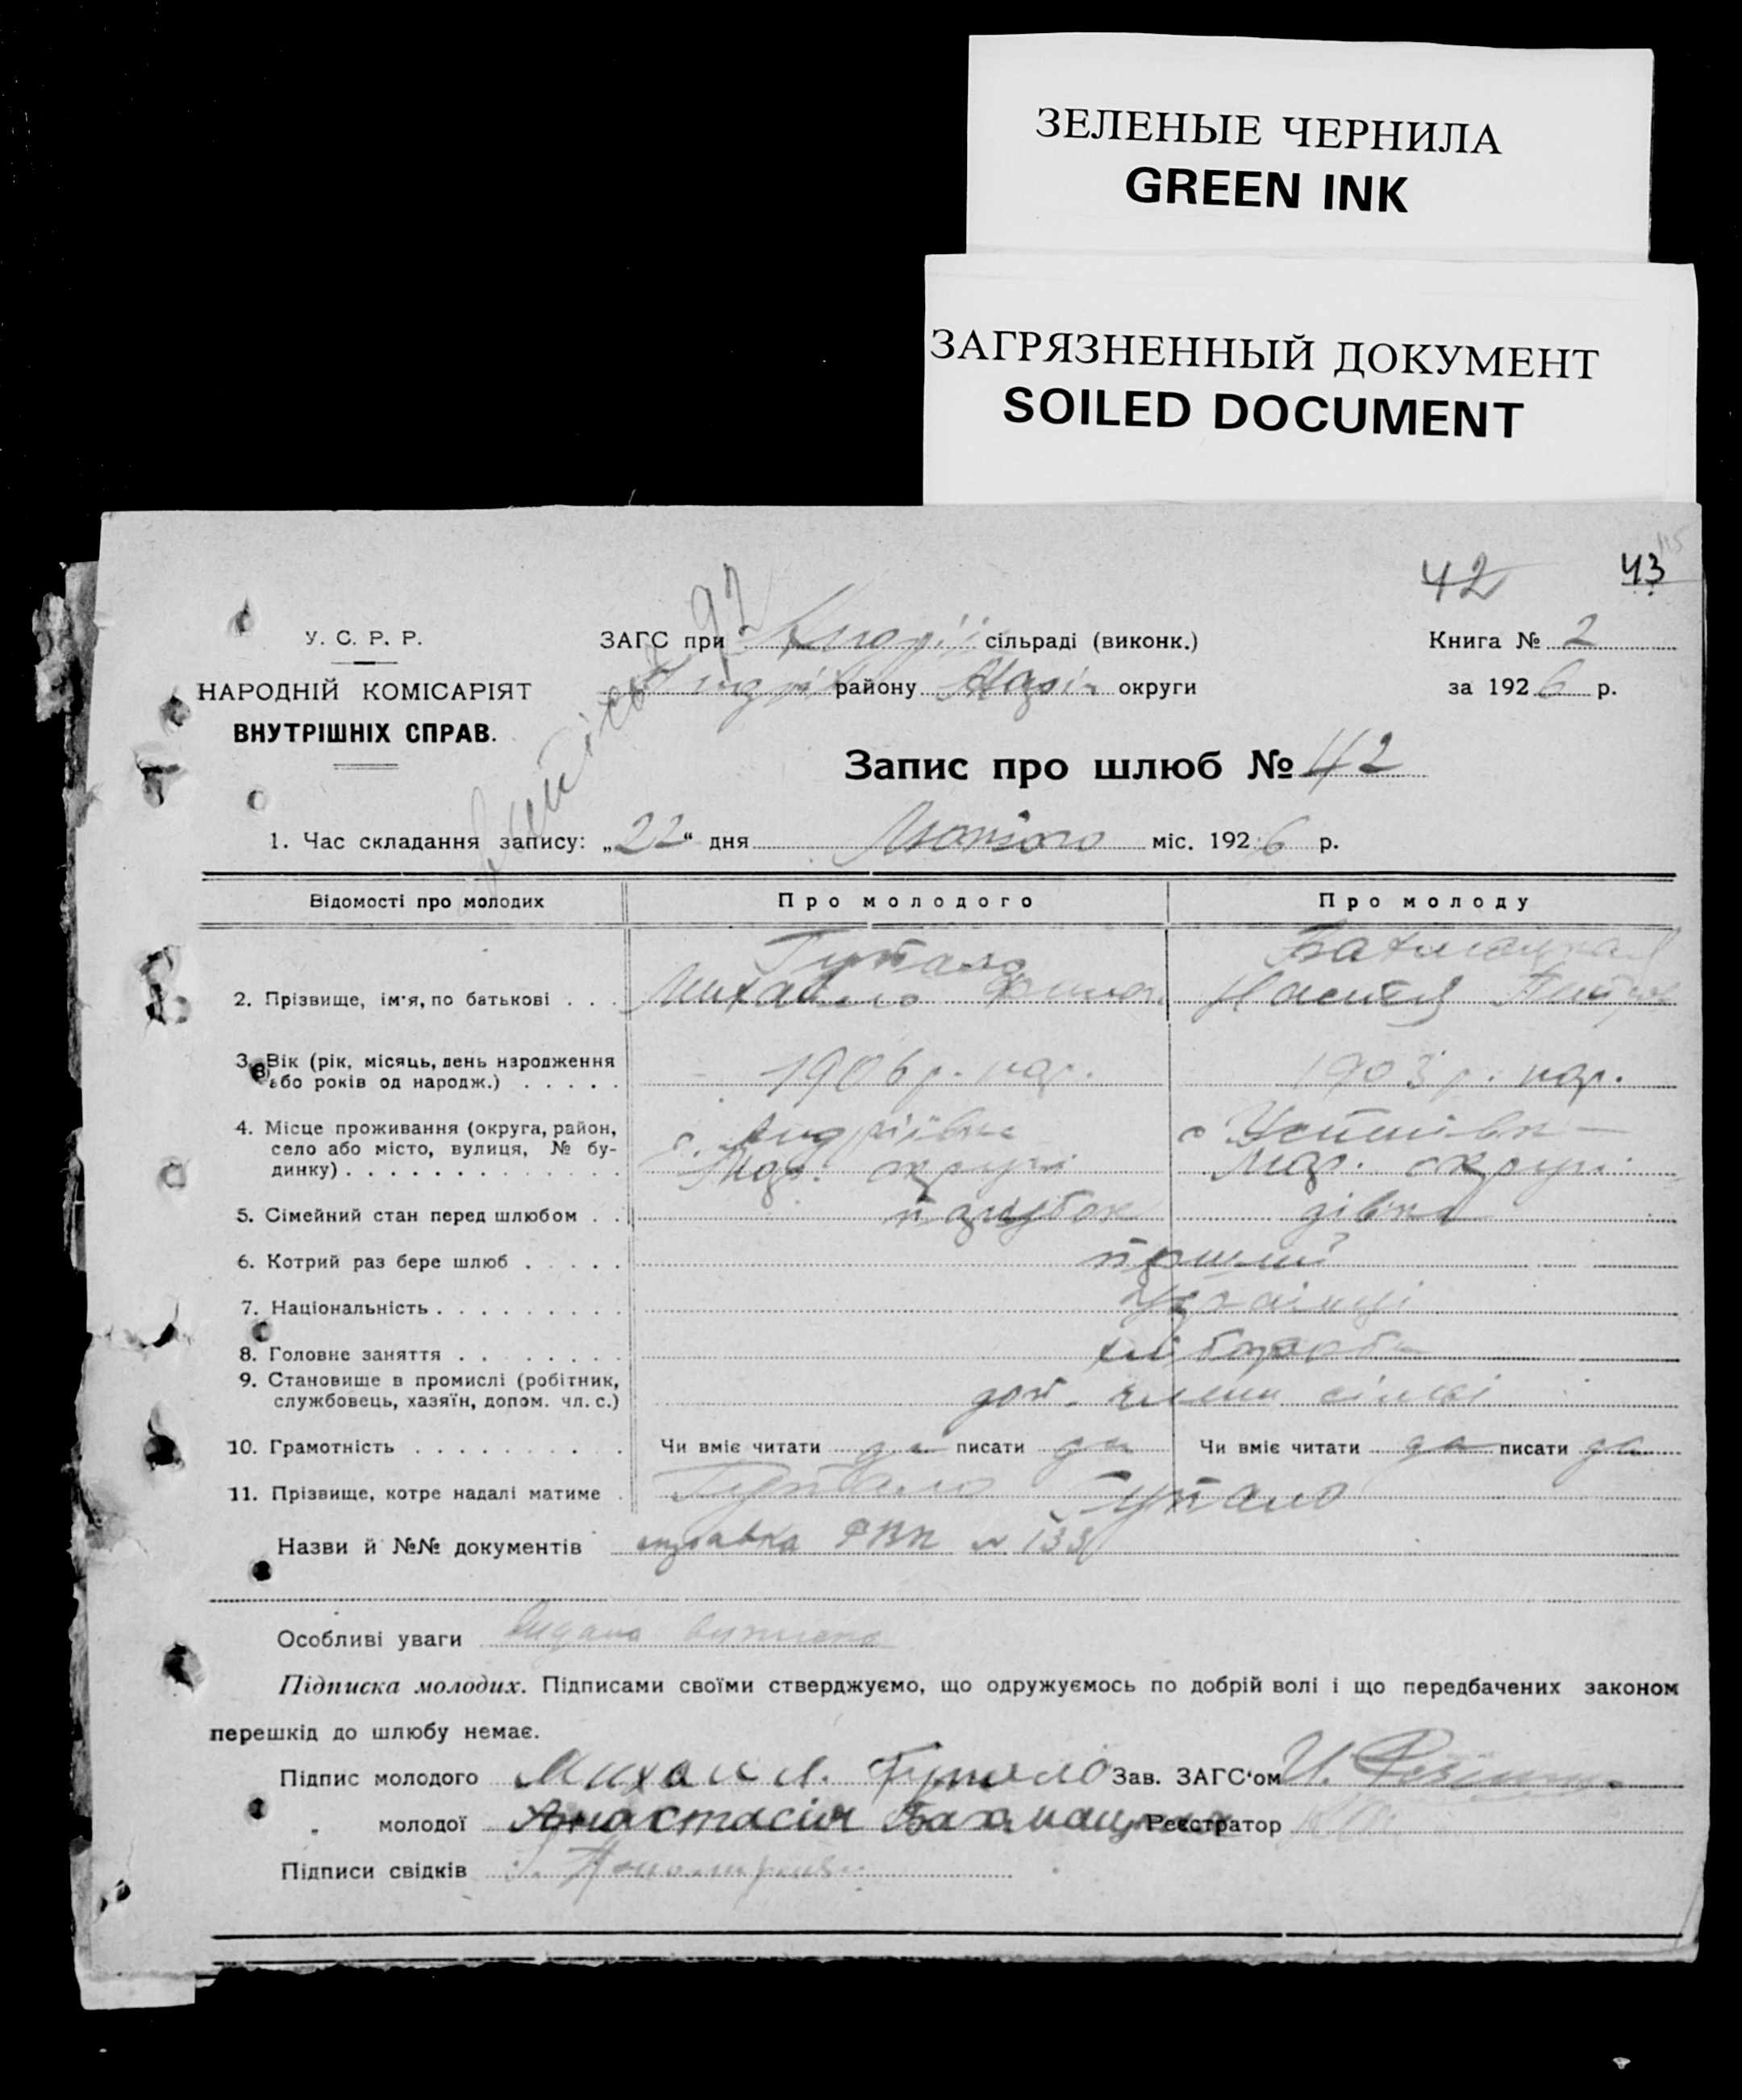 ЗЕЛЕНЫЕ ЧЕРНИЛА
GREEN INK
ЗАГРЯЗНЕННЫЙ ДОКУМЕНТ
SOILED DOCUMENT
42 43
У. С. Р. Р.
НАРОДНІЙ КОМІСАРІЯТ
ВНУТРІШНІХ СПРАВ.
ЗАГС при сільраді (виконк.)
району округи
Книга № 2
за 1926 р.
Запис про шлюб № 42
1. Час складання запису: „22“ дня Лютого міс. 1926 р.
Відомості про молодих Про молодого Про молоду
Гупало
2. Прізвище, ім'я, по батькові . . . Михайло Настя
3. Вік (рік, місяць, день народження 1906 р. нар. 1903 р. нар.
або років од народж.) . . . . .
4. Місце проживання (округа, район, с. Андріївка с Устимівк
село або місто, вулиця, № бу-
динку) . . . . . . . . . . . . Мар. округи Мар. округи
5. Сімейний стан перед шлюбом . . парубок дівка
6. Котрий раз бере шлюб . . . . . перший
7. Національність . . . . . . . . . Українці
8. Головне заняття . . . . . . . . хліборобів
9. Становище в промислі (робітник,
службовець, хазяїн, допом. чл. с.) доп. члени сімві
10. Грамотність . . . . . . . . . . Чи вміє читати да писати да Чи вміє читати да писати да
11. Прізвище, котре надалі матиме . Гупало Гупало
Назви й №№ документів справка РВК № 133
Особливі уваги видана виписка
Підписка молодих. Підписами своїми стверджуємо, що одружуємось по добрій волі і що передбачених законом
перешкід до шлюбу немає.
Підпис молодого Михаил Гупало Зав. ЗАГС'ом
„ молодої Анастасія Бахмацкая Реєстратор
Підписи свідків